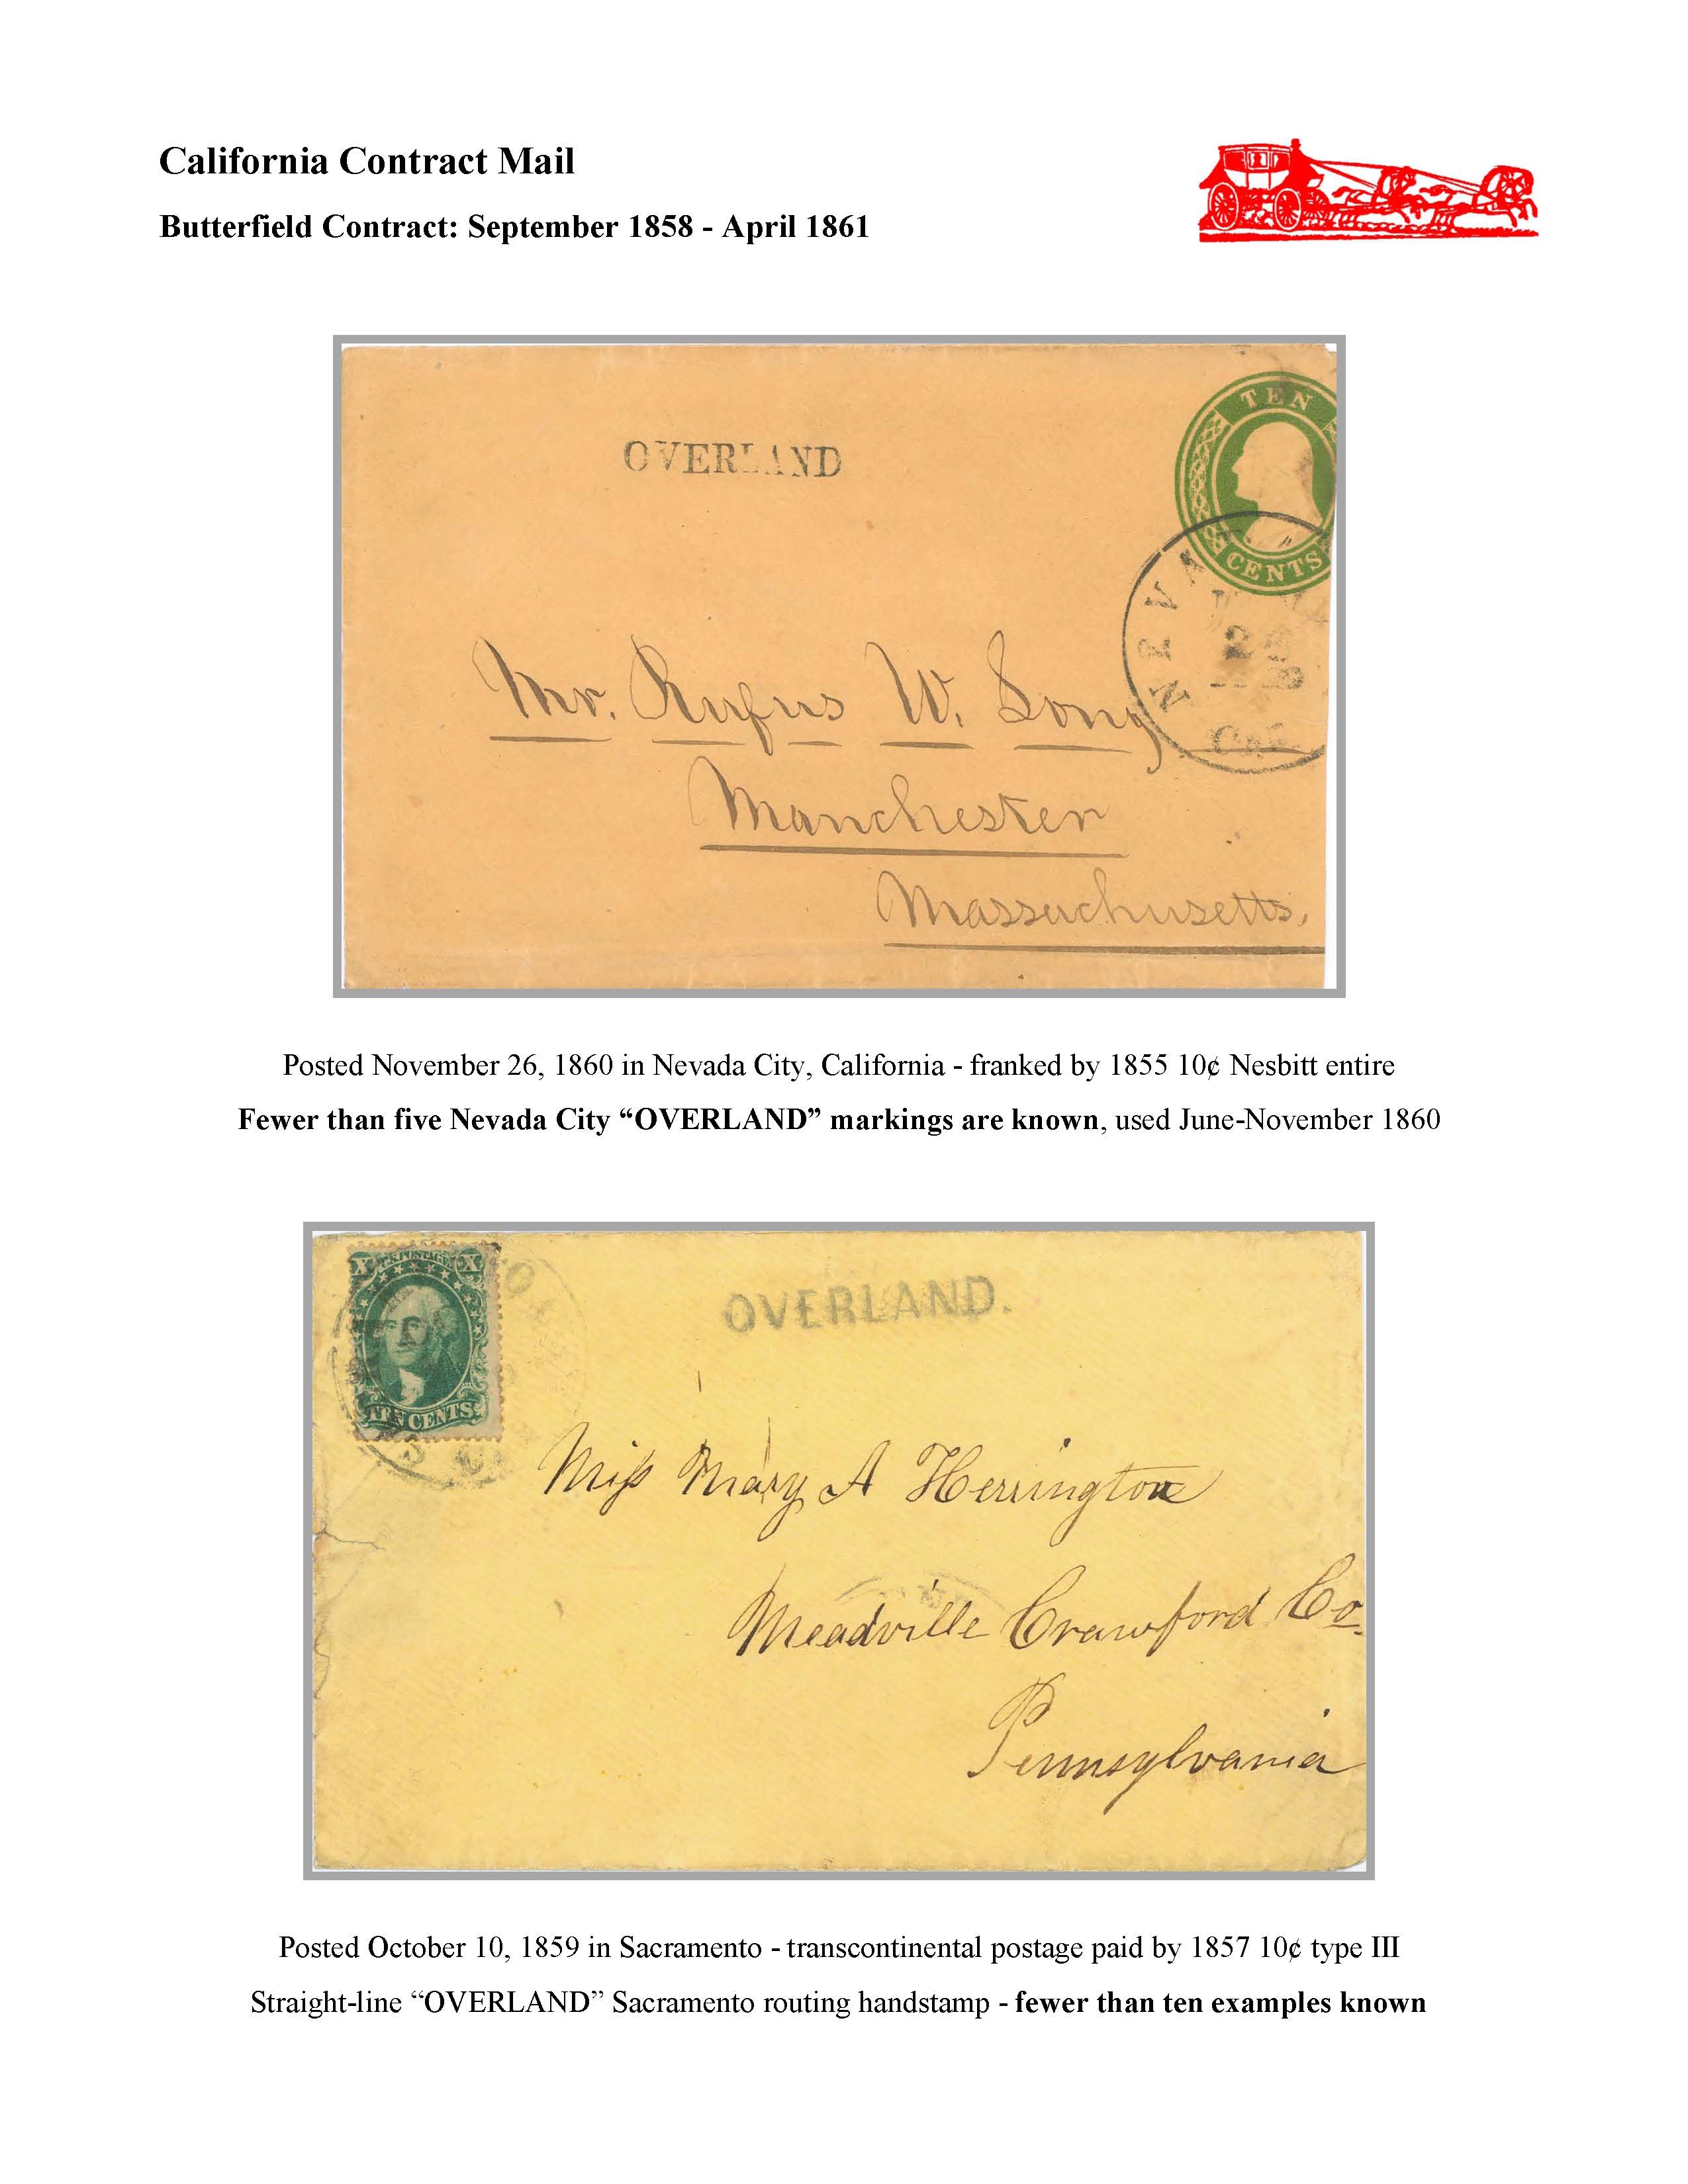 California Contract Mail
Butterfield Contract: September 1858 - April 1861
TEN
OVERLAND
CENTS
NEVA
26
Cal.
Mr. Rufus W. Long
Manchester
Massachusetts.
Posted November 26, 1860 in Nevada City, California - franked by 1855 10¢ Nesbitt entire
Fewer than five Nevada City “OVERLAND” markings are known, used June-November 1860
X U.S. POSTAGE X
OVERLAND.
TEN CENTS
Miss Mary A Herrington
Meadville Crawford Co.
Pennsylvania
Posted October 10, 1859 in Sacramento - transcontinental postage paid by 1857 10¢ type III
Straight-line “OVERLAND” Sacramento routing handstamp - fewer than ten examples known